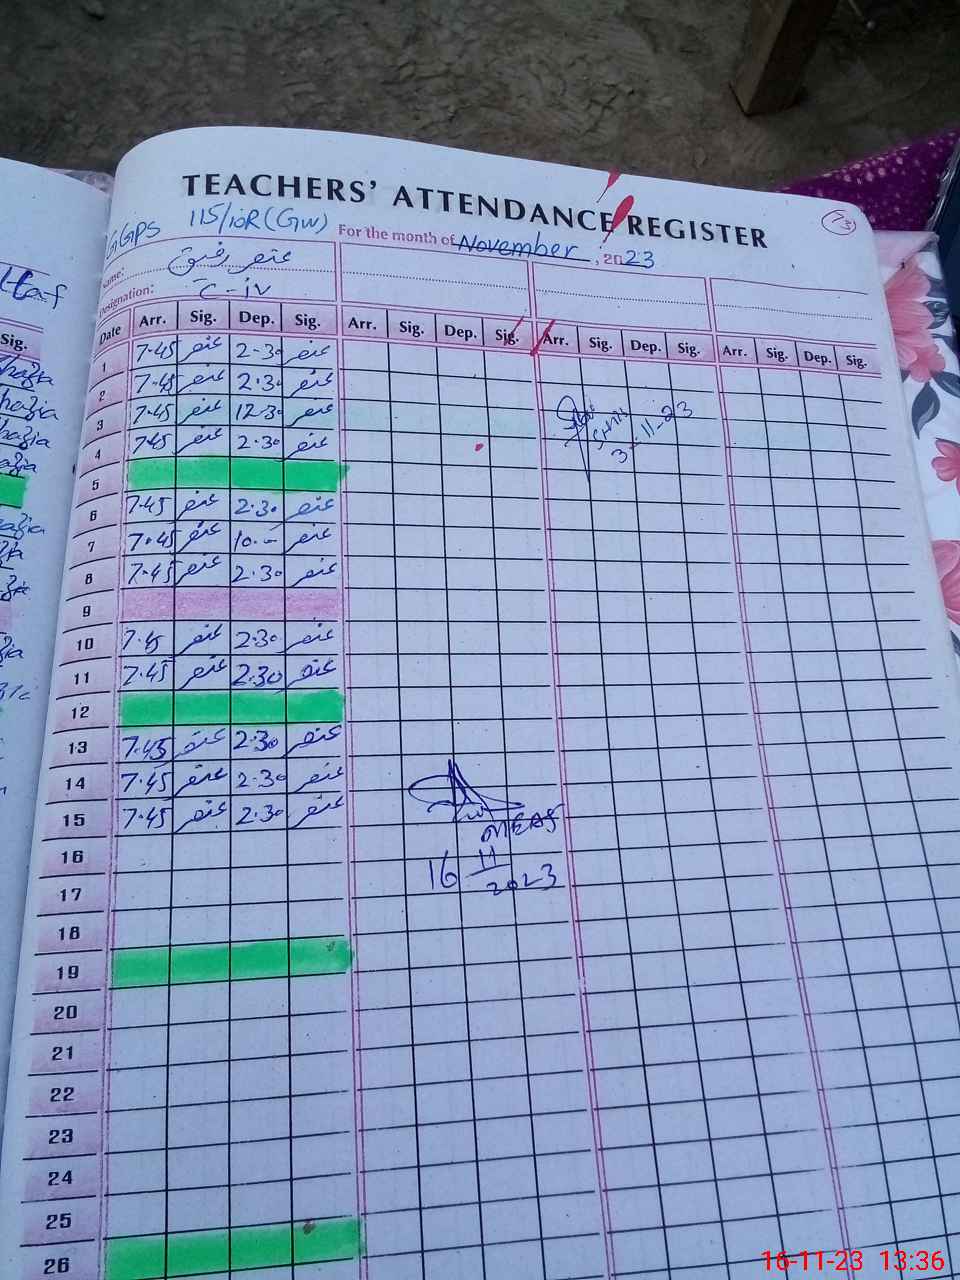 TEACHERS' ATTENDANCE REGISTER
73
GGPS 115/10R (GW)
For the month of November, 2023
Name: عنصر رفیق
Designation: C-iv
Date Arr. Sig. Dep. Sig. Arr. Sig. Dep. Sig. Arr. Sig. Dep. Sig. Arr. Sig. Dep. Sig.
1 7.45 عنصر 2-30 عنصر
2 7.45 عنصر 2.30 عنصر
3 7.45 عنصر 12.30 عنصر
3-11-23
4 7.45 عنصر 2.30 عنصر
5
6 7.45 عنصر 2.30 عنصر
7 7.45 عنصر 10.- عنصر
8 7.45 عنصر 2.30 عنصر
9
10 7.45 عنصر 2.30 عنصر
11 7.45 عنصر 2.30 عنصر
12
13 7.45 عنصر 2.30 عنصر
14 7.45 عنصر 2.30 عنصر
15 7.45 عنصر 2.30 عنصر
MEAS
16
16 11 2023
17
18
19
20
21
22
23
24
25
26
Sig.
16-11-23 13:36